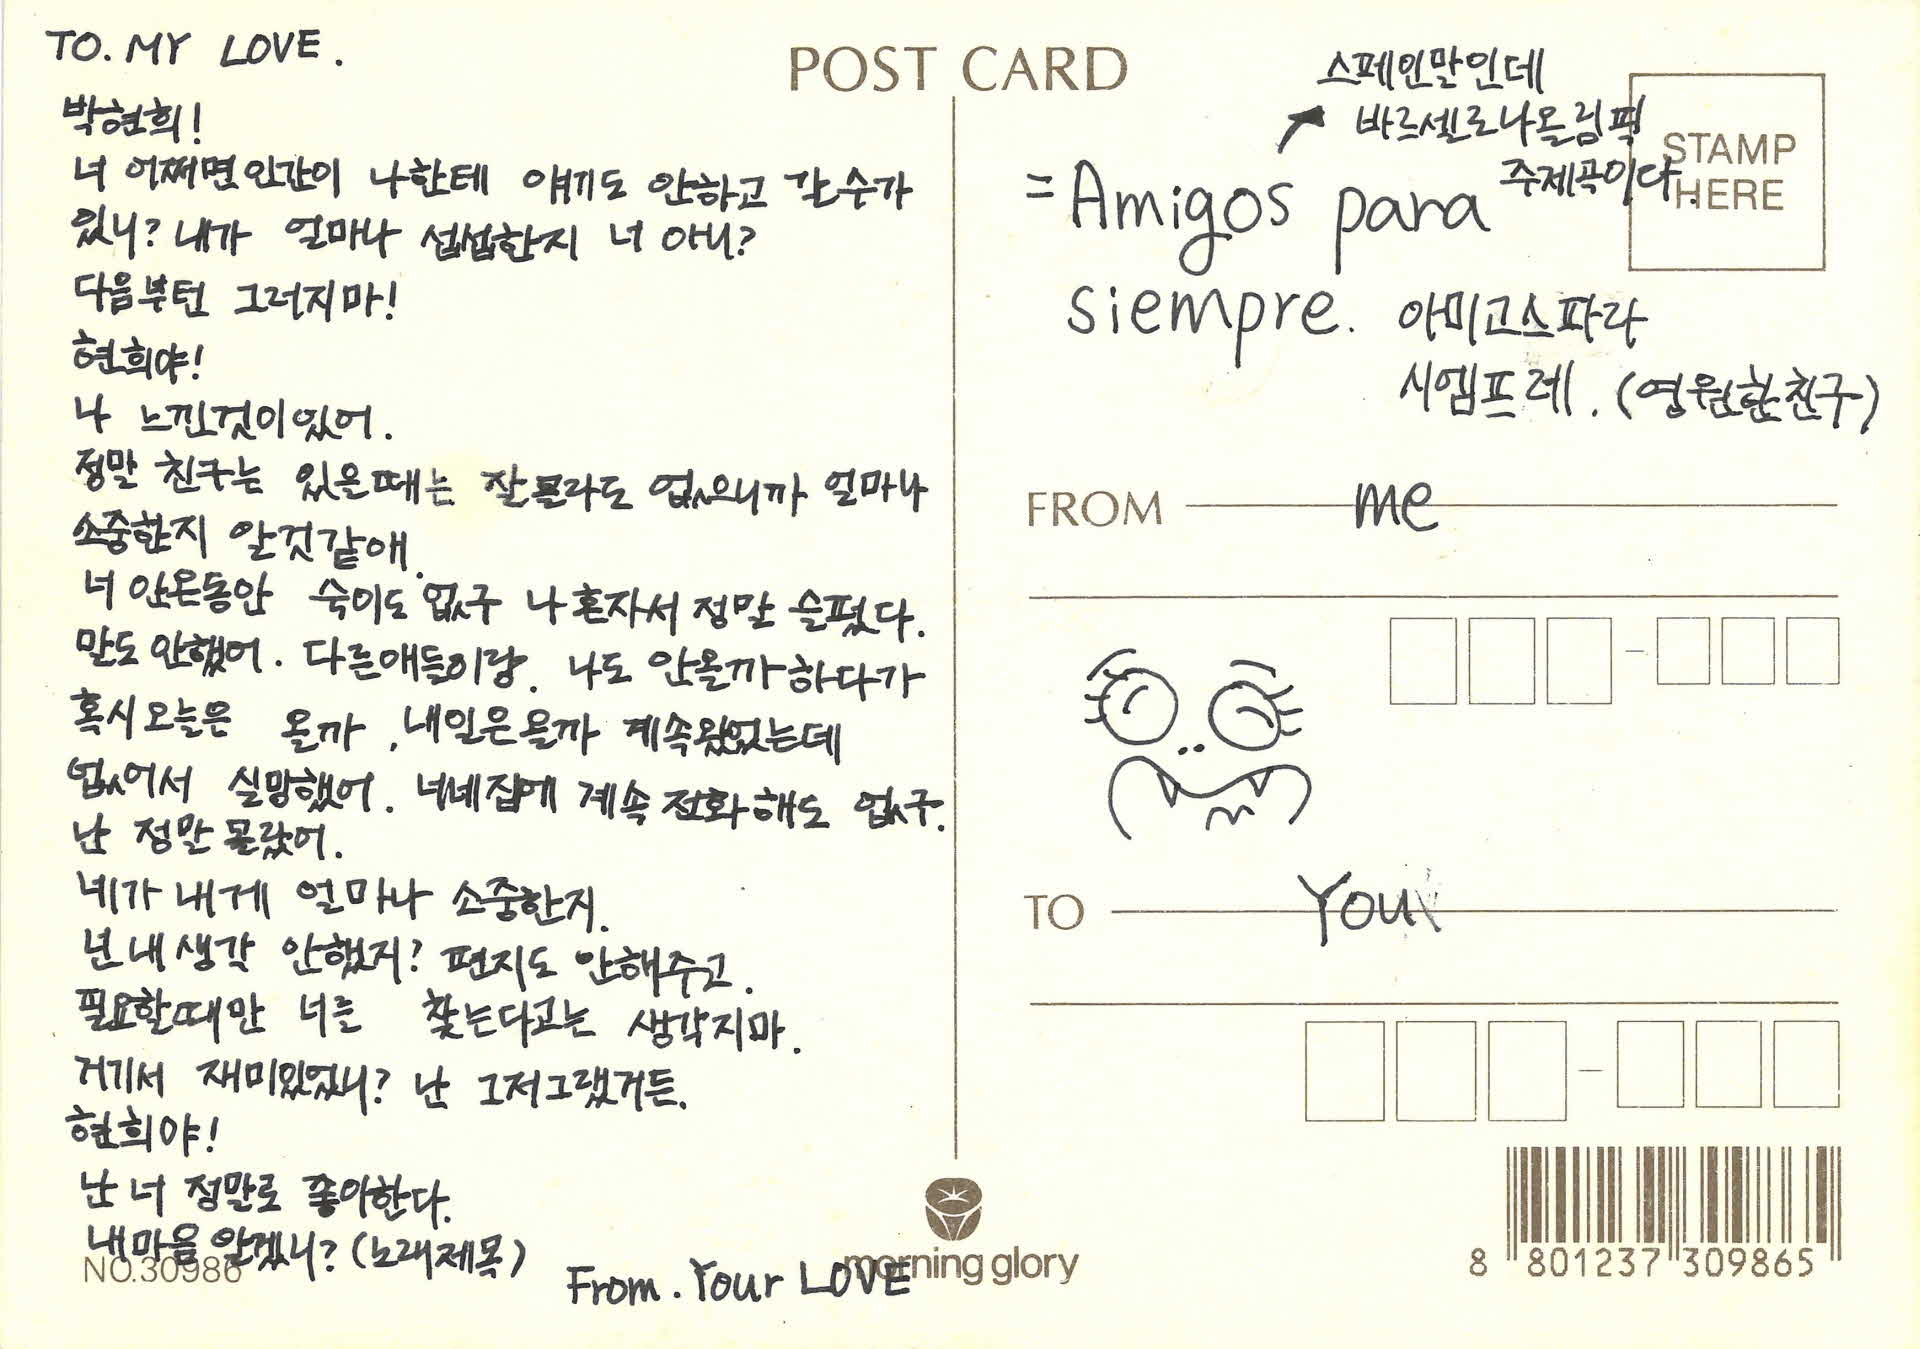 TO. MY LOVE.
박현희!
너 어쩌면 인간이 나한테 얘기도 안하고 갈 수가
있니? 내가 얼마나 섭섭한지 너 아니?
다음부턴 그러지마!
현희야!
나 느낀것이있어.
정말 친구는 있을때는 잘몰라도 없으니까 얼마나
소중한지 알것같애.
너 안온동안 숙이도 없구 나 혼자서 정말 슬펐다.
말도 안했어. 다른애들이랑. 나도 안올까하다가
혹시오늘은 올까, 내일은올까 계속왔었는데
없어서 실망했어. 너네집에 계속 전화해도 없구.
난 정말몰랐어.
네가 내게 얼마나 소중한지.
넌 내생각 안했지? 편지도 안해주고.
필요할때만 너를 찾는다고는 생각지마.
거기서 재미있었니? 난 그저그랬거든.
현희야!
난 너 정말로 좋아한다.
내마음 알겠니? (노래제목)
From. Your LOVE
NO.30986
morning glory
POST CARD
스페인말인데
바르셀로나올림픽
주제곡이다.
STAMP
HERE
= Amigos para
siempre. 아미고스파라
시엠프레. (영원한친구)
FROM me
TO You
8 801237 309865